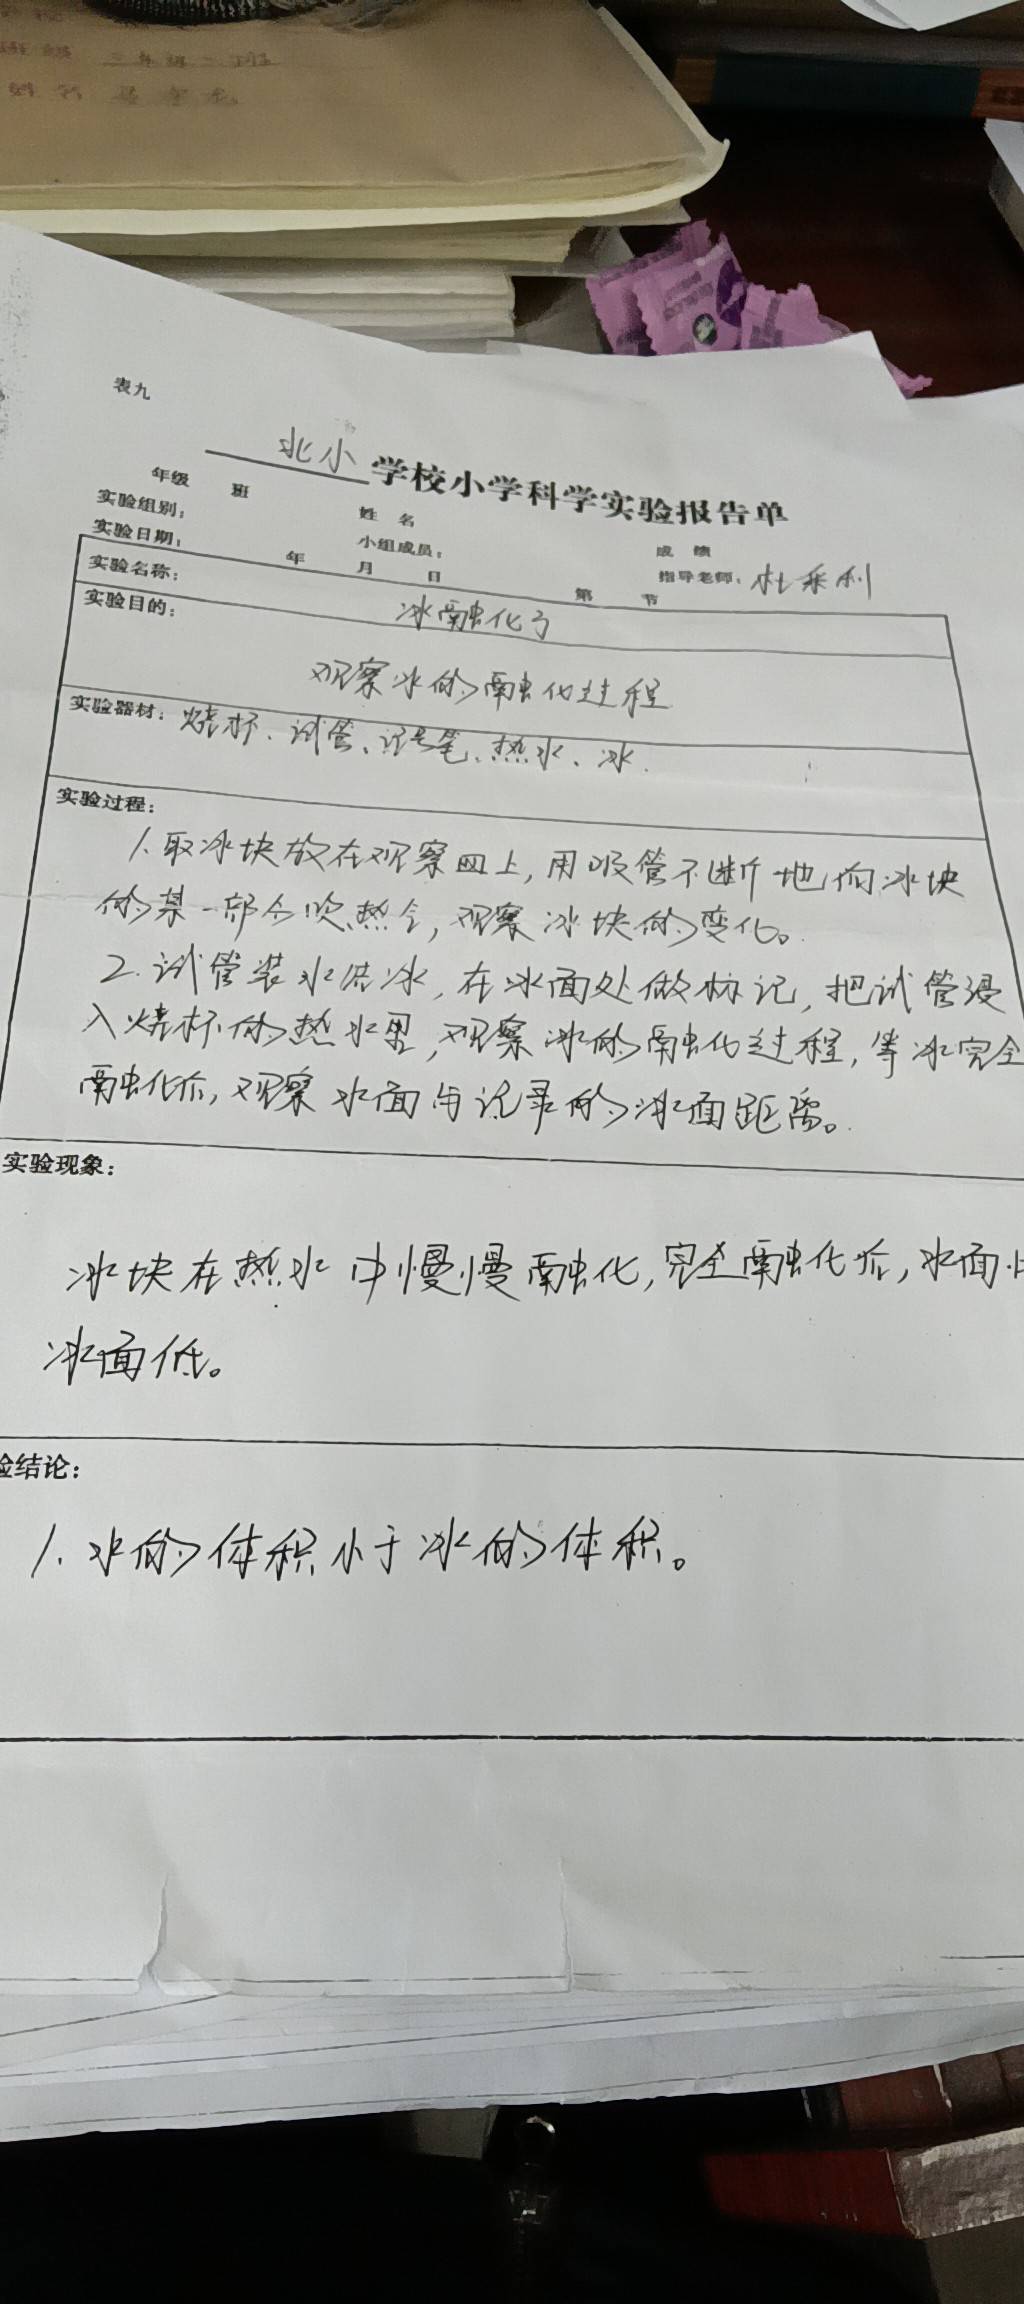 三年级二班
表九
北小学校小学科学实验报告单
年级 班 姓名 成绩
实验组别： 小组成员： 指导老师：杜采利
实验日期： 年 月 日 第 节
实验名称： 冰融化了
实验目的：
观察冰的融化过程
实验器材：烧杯、试管、记号笔、热水、冰.
实验过程：
1.取冰块放在观察皿上，用吸管不断地向冰块
的某一部分吹热气，观察冰块的变化。
2.试管装水结冰，在冰面处做标记，把试管浸
入烧杯的热水里，观察冰的融化过程，等冰完全
融化后，观察水面与记录的冰面距离。
实验现象：
冰块在热水中慢慢融化，完全融化后，水面比
冰面低。
验结论：
1.水的体积小于冰的体积。